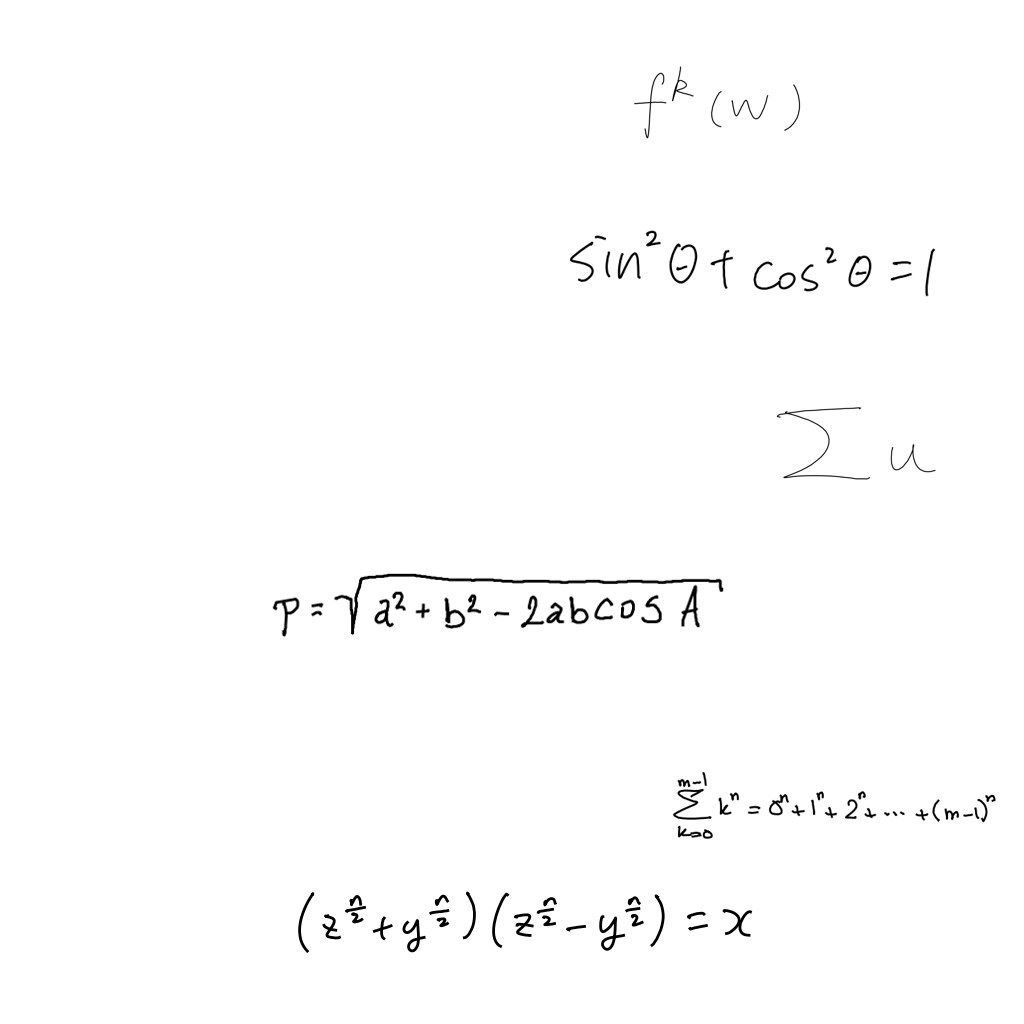 f^k (w)
sin^2 θ + cos^2 θ = 1
∑ u
P = √(a^2 + b^2 - 2ab cos A)
∑_{k=0}^{m-1} k^n = 0^n + 1^n + 2^n + ... + (m-1)^n
(z^{n/2} + y^{n/2}) (z^{n/2} - y^{n/2}) = x